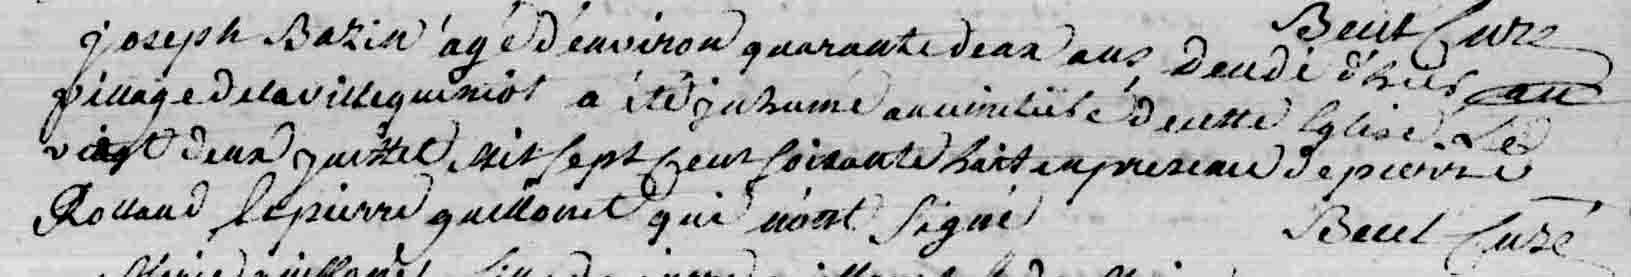 Beul Curé
joseph Bazin âgé d'environ quarante deux ans, decedé d'hier au
village de la villequeniot a été inhumé au cimetière de cette Eglise le
vingt deux juillet mil sept cent soixante huit en presence de pierre
Rolland et pierre guillouet qui n'ont signé
Beul Curé